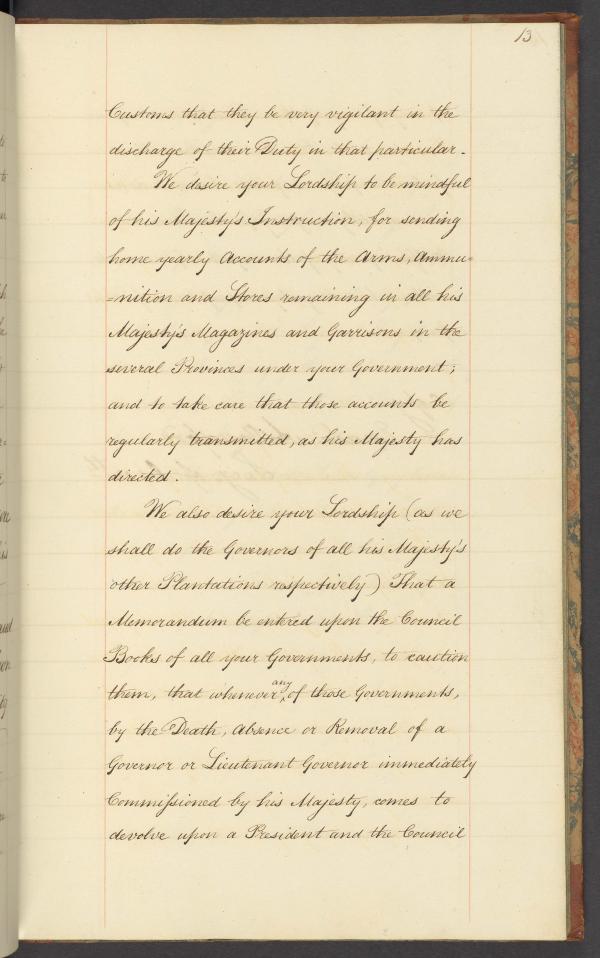 13
Customs that they be very vigilant in the
discharge of their Duty in that particular.
We desire your Lordship to be mindful
of his Majesty's Instruction, for sending
home yearly Accounts of the Arms, Ammu=
=nition and Stores remaining in all his
Majesty's Magazines and Garrisons in the
several Provinces under your Government;
and to take care that those accounts be
regularly transmitted, as his Majesty has
directed.
We also desire your Lordship (as we
shall do the Governors of all his Majesty's
other Plantations respectively) That a
Memorandum be entered upon the Council
Books of all your Governments, to caution
them, that whenever any of those Governments,
by the Death, Absence or Removal of a
Governor or Lieutenant Governor immediately
Commissioned by his Majesty, comes to
devolve upon a President and the Council